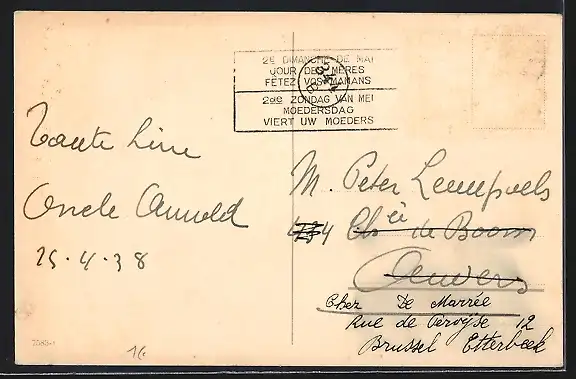 2e DIMANCHE DE MAI
JOUR DES MÈRES
FETEZ VOS MAMANS
2de ZONDAG VAN MEI
MOEDERSDAG
VIERT UW MOEDERS
Tante Line
Oncle Arnold
25.4.38
M. Peter
Chée de Boom
Anvers
Chez De Marrée
Rue de Pervyse 12
Brussel Etterbeek